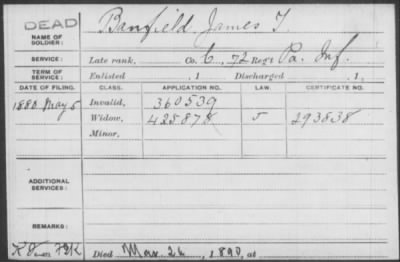 DEAD
NAME OF SOLDIER: Banfield, James T.
SERVICE: Late rank, Co. C, 72 Reg't Pa. Inf.
TERM OF SERVICE: Enlisted , 1 Discharged , 1
DATE OF FILING. CLASS. APPLICATION NO. LAW. CERTIFICATE NO.
1880 May 5 Invalid, 360539
Widow, 425878 5 293838
Minor,
ADDITIONAL SERVICES:
REMARKS:
Died Mar. 26, 1890, at